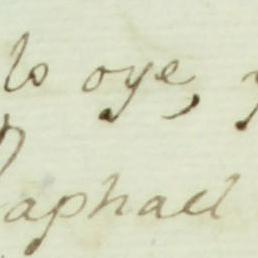 lo oye,
Raphael